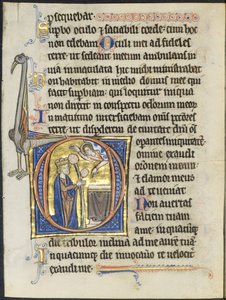 psequebar.
Supbo oculo & insaciabili corde: cum hoc
non edebam. Oculi mei ad fideles
terre ut sedeant mecum ambulans in
via inmaculata hic michi ministrabat
Non habitabit in medio domus mee qui
facit supbiam: qui loquitur iniqua
non direxit in conspectu oculorum meorum
In matutino interficiebam omnes peccatores
terre: ut disperderem de civitate dni oms
operantes iniquitatem
Domine exaudi
orationem meam
et clamor meus
ad te veniat
Non avertas
faciem tuam
a me: in quacumque
die tribulor inclina ad me aurem tuam
In quacumque die invocavero te velocit
exaudi me